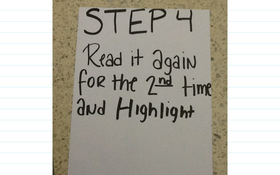 STEP 4
Read it again
for the 2nd time
and Highlight